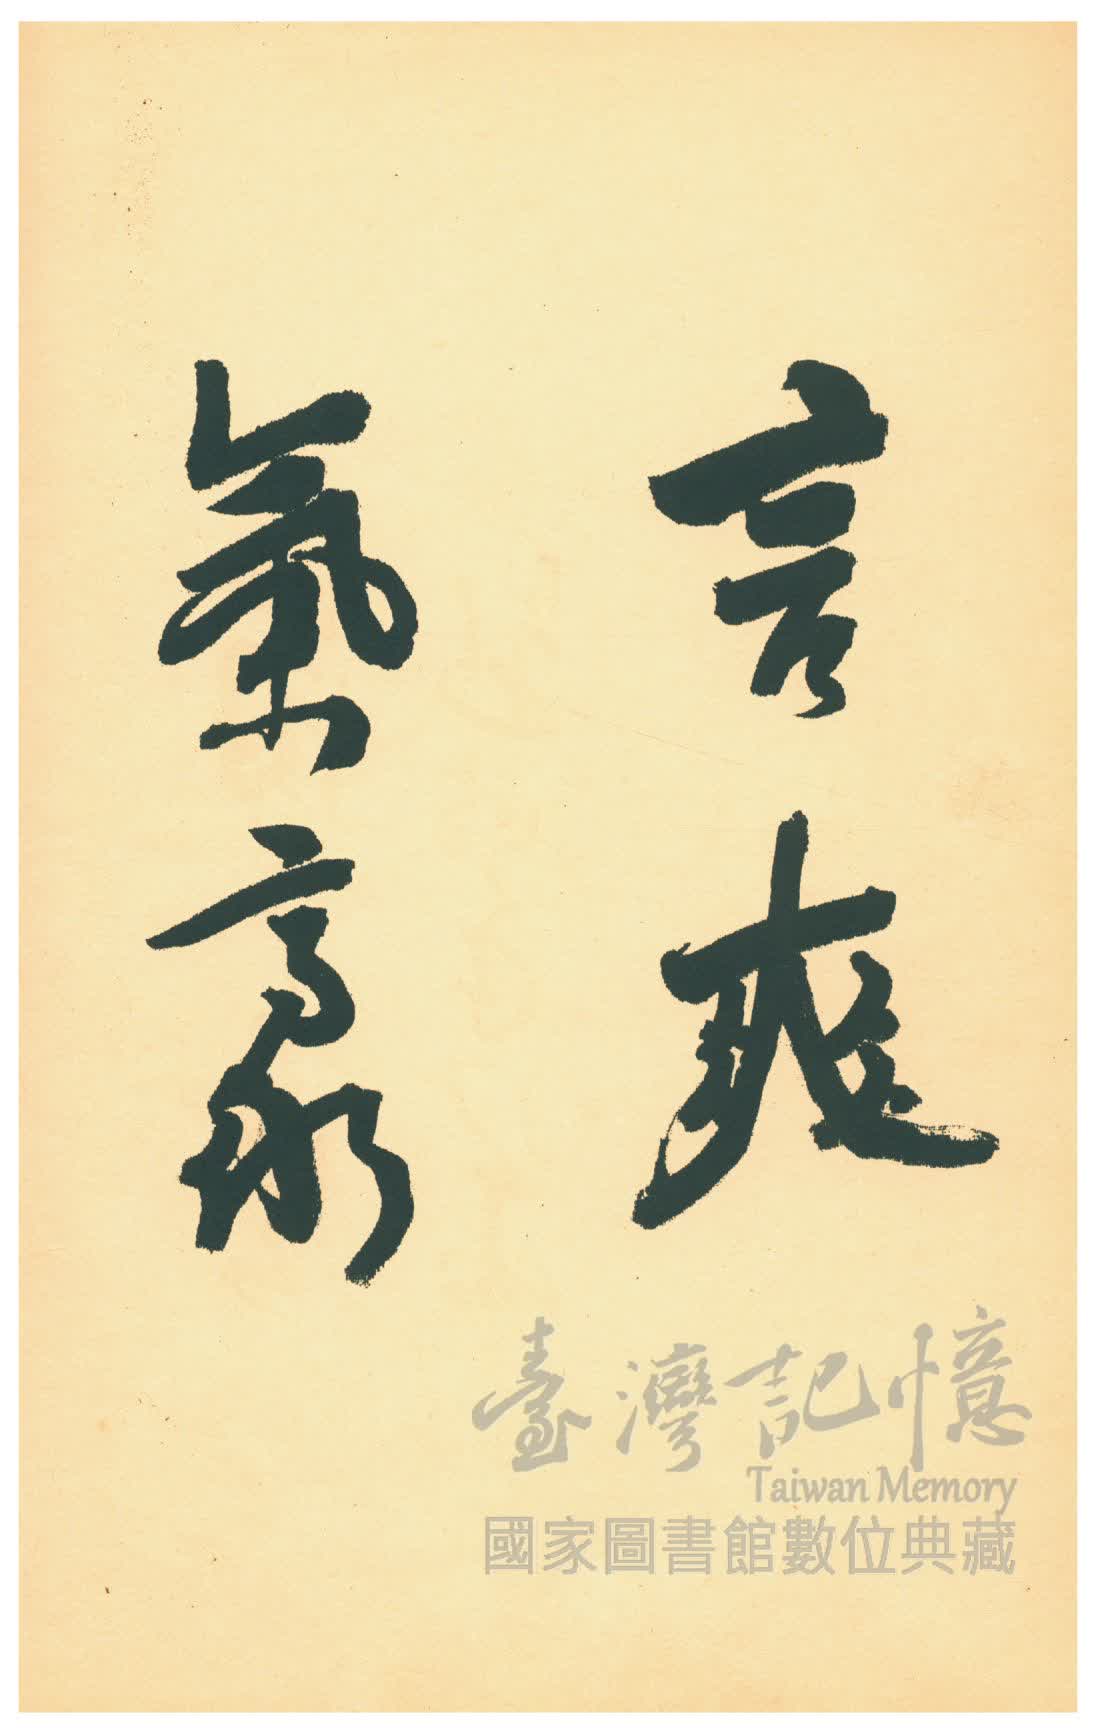 言爽
氣豪
臺灣記憶
Taiwan Memory
國家圖書館數位典藏